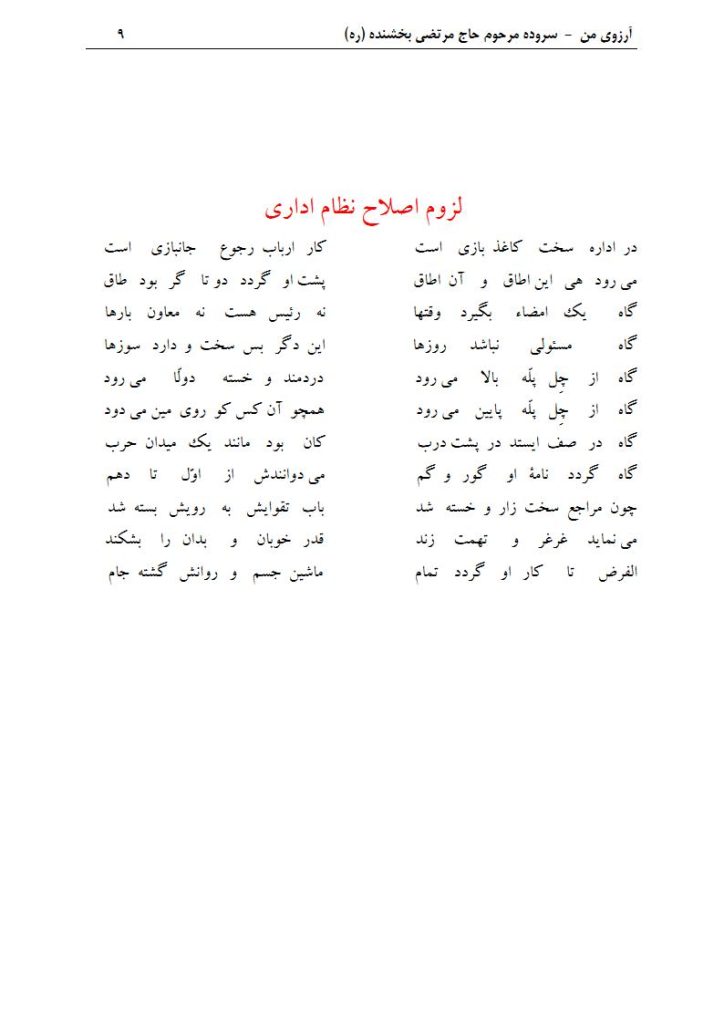 آرزوی من - سروده مرحوم حاج مرتضی بخشنده (ره) ۹
لزوم اصلاح نظام اداری
در اداره سخت کاغذ بازی است کار ارباب رجوع جانبازی است
می رود هی این اطاق و آن اطاق پشت او گردد دو تا گر بود طاق
گاه یک امضاء بگیرد وقتها نه رئیس هست نه معاون بارها
گاه مسئولی نباشد روزها این دگر بس سخت و دارد سوزها
گاه از چِل پلّه بالا می رود دردمند و خسته دولّا می رود
گاه از چِل پلّه پایین می رود همچو آن کس کو روی مین می دود
گاه در صف ایستد در پشت درب کان بود مانند یک میدان حرب
گاه گردد نامۀ او گور و گم می دوانندش از اوّل تا دهم
چون مراجع سخت زار و خسته شد باب تقوایش به رویش بسته شد
می نماید غرغر و تهمت زند قدر خوبان و بدان را بشکند
الفرض تا کار او گردد تمام ماشین جسم و روانش گشته جام